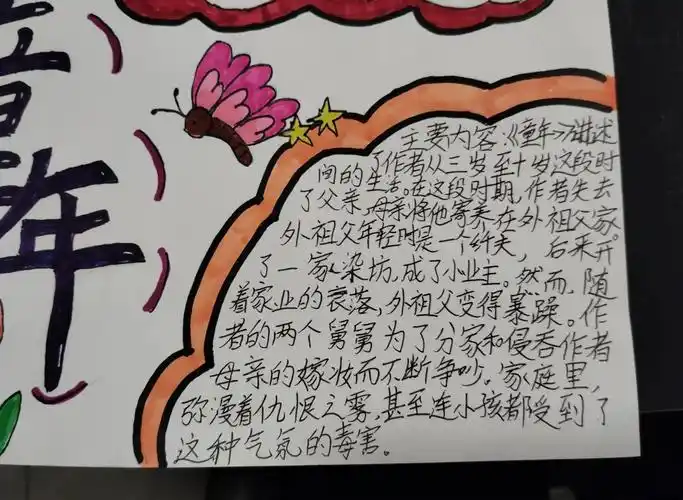 童年
主要内容:《童年》讲述
了作者从三岁至十岁这段时
间的生活。在这段时期,作者失去
了父亲,母亲将他寄养在外祖父家。
外祖父年轻时是一个纤夫,后来开
了一家染坊,成了小业主。然而,随
着家业的衰落,外祖父变得暴躁。作
者的两个舅舅为了分家和侵吞作者
母亲的嫁妆而不断争吵。家庭里,
弥漫着仇恨之雾,甚至连小孩都受到了
这种气氛的毒害。